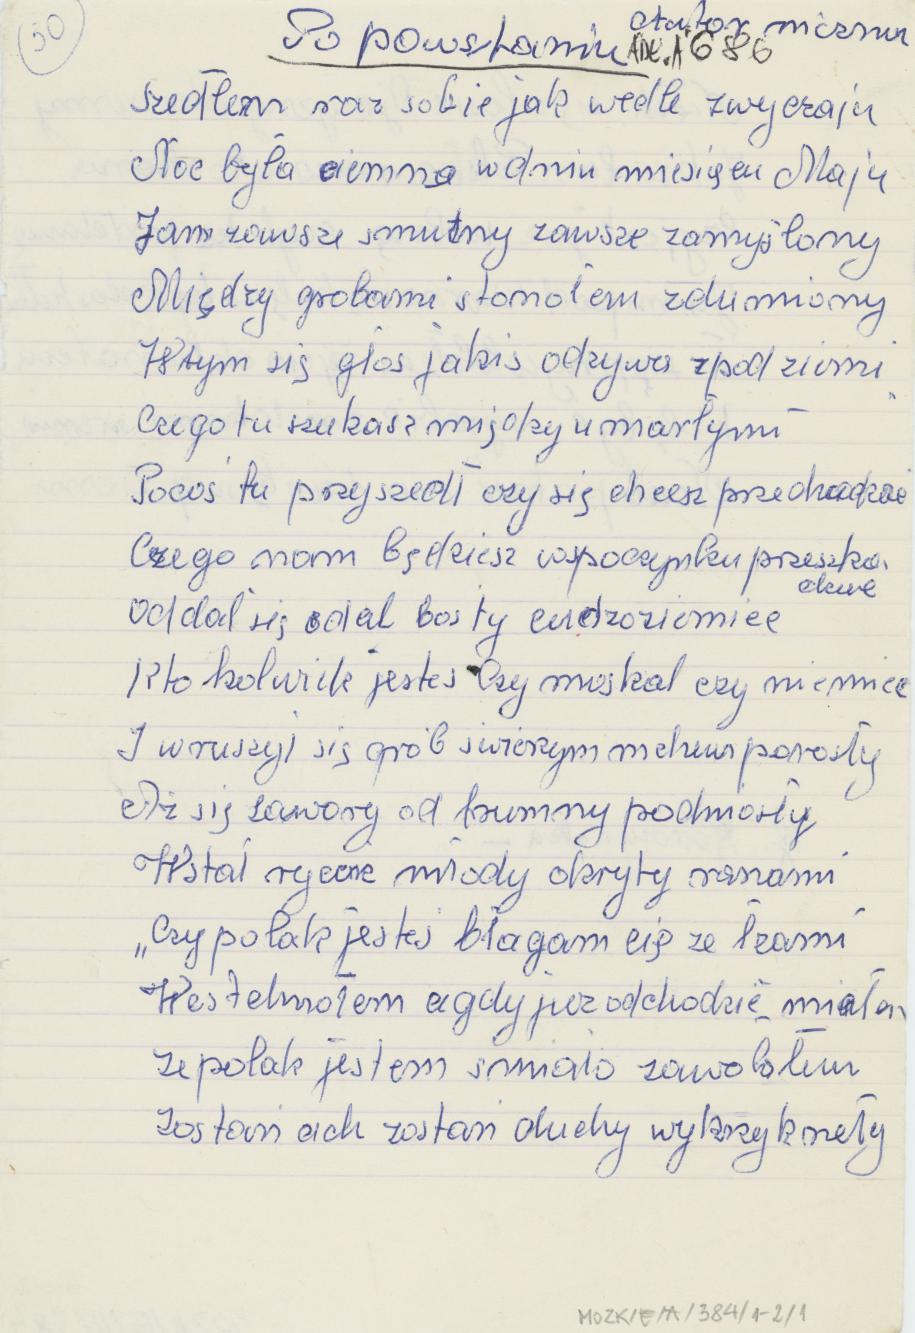 50
Po powstaniu Autor nieznan
ADK.A 686
Szedłem raz sobie jak wedle zwyczaju
Noc była ciemna w dniu miesięcu Maju
Jam zawsze smutny zawsze zamyślony
Między grobami stanołem zdumiony
Wtym się głos jakis odzywa zpod ziemi
Czego tu szukasz między umarłymi
Pocoś tu przyszedł czy się chcesz przechadzać
Czego nam będziesz wspoczynku przeszka,
dzać
Oddal się odal boś ty cudzoziemiec
Kto kolwiek jestes Czy moskal czy niemiec
I wruszył się grób swieżym mchem porosły
Aż się zawory od trumny podniosły
Wstał rycerz młody okryty ranami
„Czy polak jesteś błagam cię ze łzami
Westchnołem a gdy już odchodzić miałem
że polak jestem smiało zawołołem
Zostań ach zostań duchy wykrzyknęły
MOZK/E/A/384/1-2/1